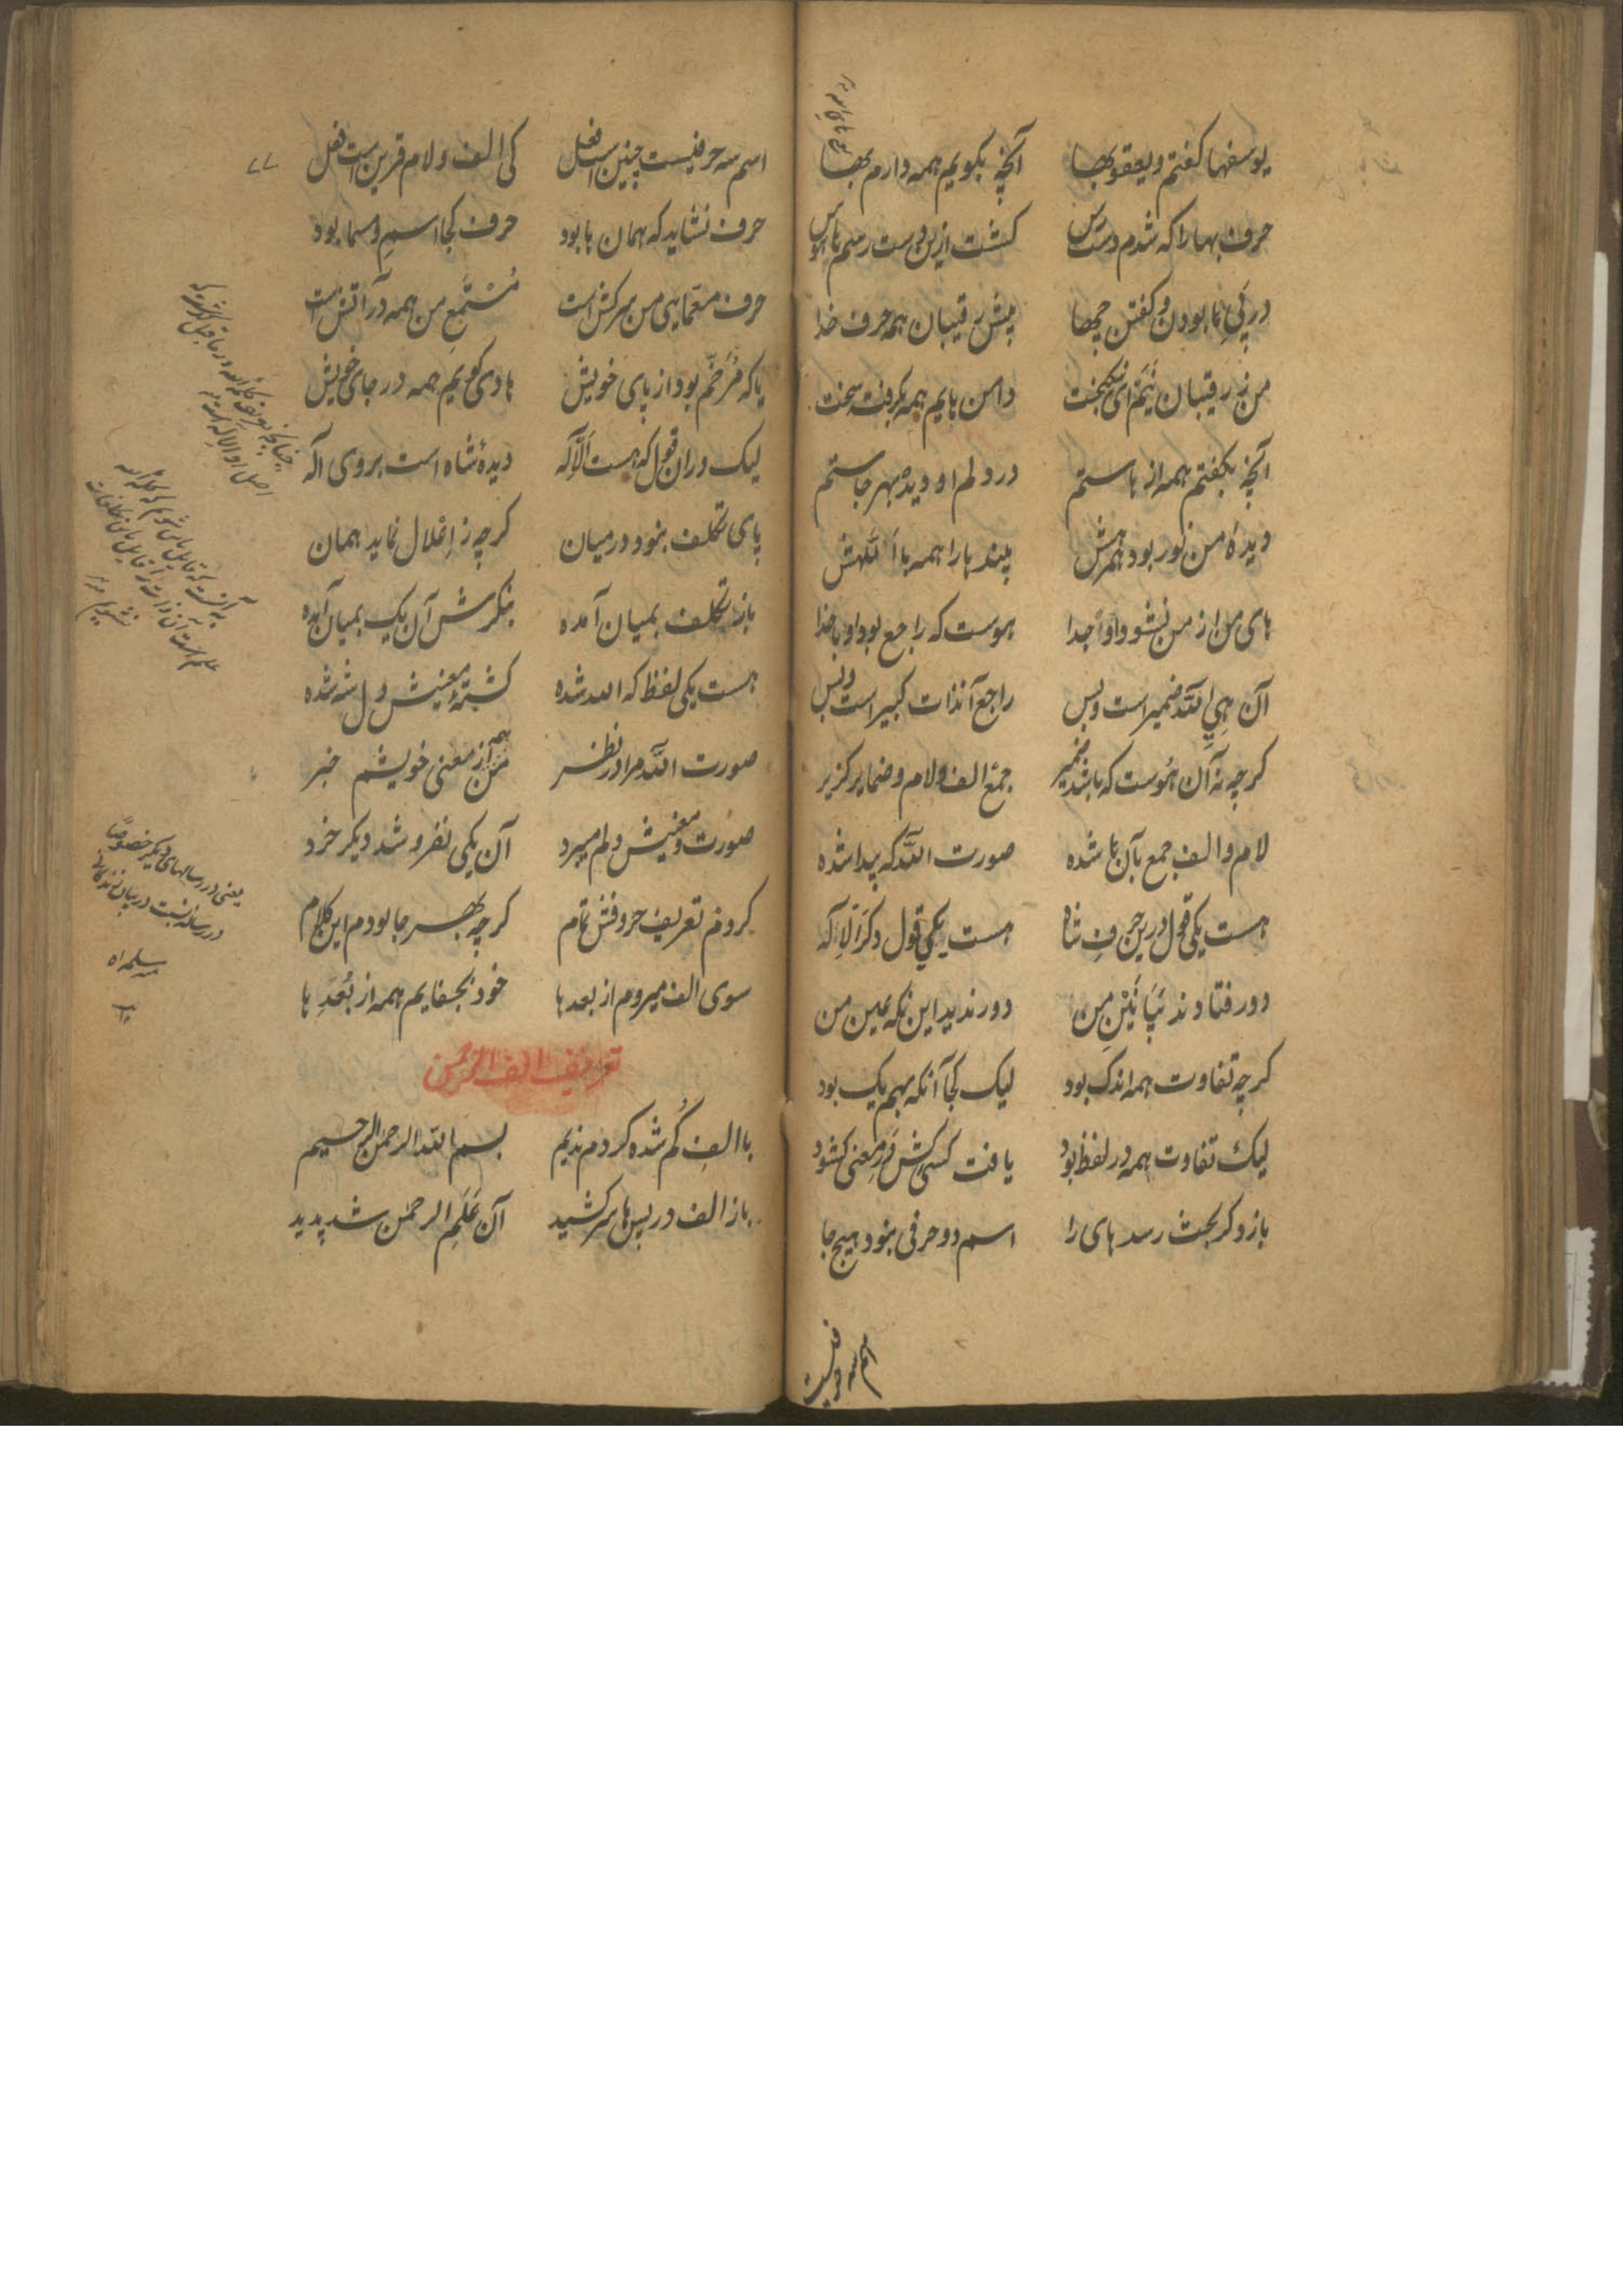 یوسفها کفتم و یعقوبها آنچه بکویم همه دارم بها
حرف بهارا که شدم دسترس کشت ازین دست رسم باس
در پی ما بودن و کفتن چها پیش رقیبان همه حرف خدا
من ز رقیبان نیم ای نیکبخت دامن بایم همه بکرفت سخت
آنچه بکفتم همه از هاستم در دلم او دیده بهر جاستم
دیده من کور بود همرهش بیند ها را همه با اللهش
های من از من نشود واو جدا هوست که راجع بود او با خدا
آن هی الله ضمیر است و بس راجع آنذات کبیر است و بس
کرچه نه آن هوست که باشد ضمیر جمع الف ولام و ضمایر کزیر
لام و الف جمع بآن ها شده صورت الله که پیدا شده
هست یکی قول درین حرف شاه هست یکی قول دکر الا اله
دور فتادند ز مابین من دور ندید این نکه عین من
کرچه تفاوت همه اندک بود لیک کجا آنکه بهم یک بود
لیک تفاوت همه در لفظ بود یافت کسی کش در معنی کشود
باز دکر بحث رسد های را اسم دو حرفی بنود هیچ جا
اسم سه حرفیست
۷۷
اسم سه حرفیست چنین است فعل کی الف و لام قرین است فعل
حرف نشاید که همان ها بود حرف کجا اسم و مسما بود
حرف معمایی من سرکش است مستمع من همه در آتش است
یا که مرخم بود از پای خویش هادی کویم همه در جای خویش
لیک دران قول که هست الا اله دیدهٔ شاه است بروی اله
پای تکلف بنود در میان کرچه ز اعلال نماید همان
باز تکلف بمیان آمده بنکرش آن یک بمیان آمده
هست یکی لفظ که الله شده کشتهٔ معنیش دل شه شده
صورت الله مرا در نظر من همه از معنی خویشم خبر
صورت و معنیش دلم میبرد آن یکی نفروشد دیکر خرد
کردم تعریف حروفش تمام کرچه بهر جا بودم این کلام
سوی الف میروم از بعد ها خود بجفایم همه از بعد ها
تعریف الف الرحمن
با الف کم شده کردم ندیم بسم الله الرحمن الرحیم
باز الف در پس ها سر کشید آن علم الرحمن شد پدید
یعنی در رسالهای دیکر خصوصا
در رساله نسبت در بیان
سلمه الله